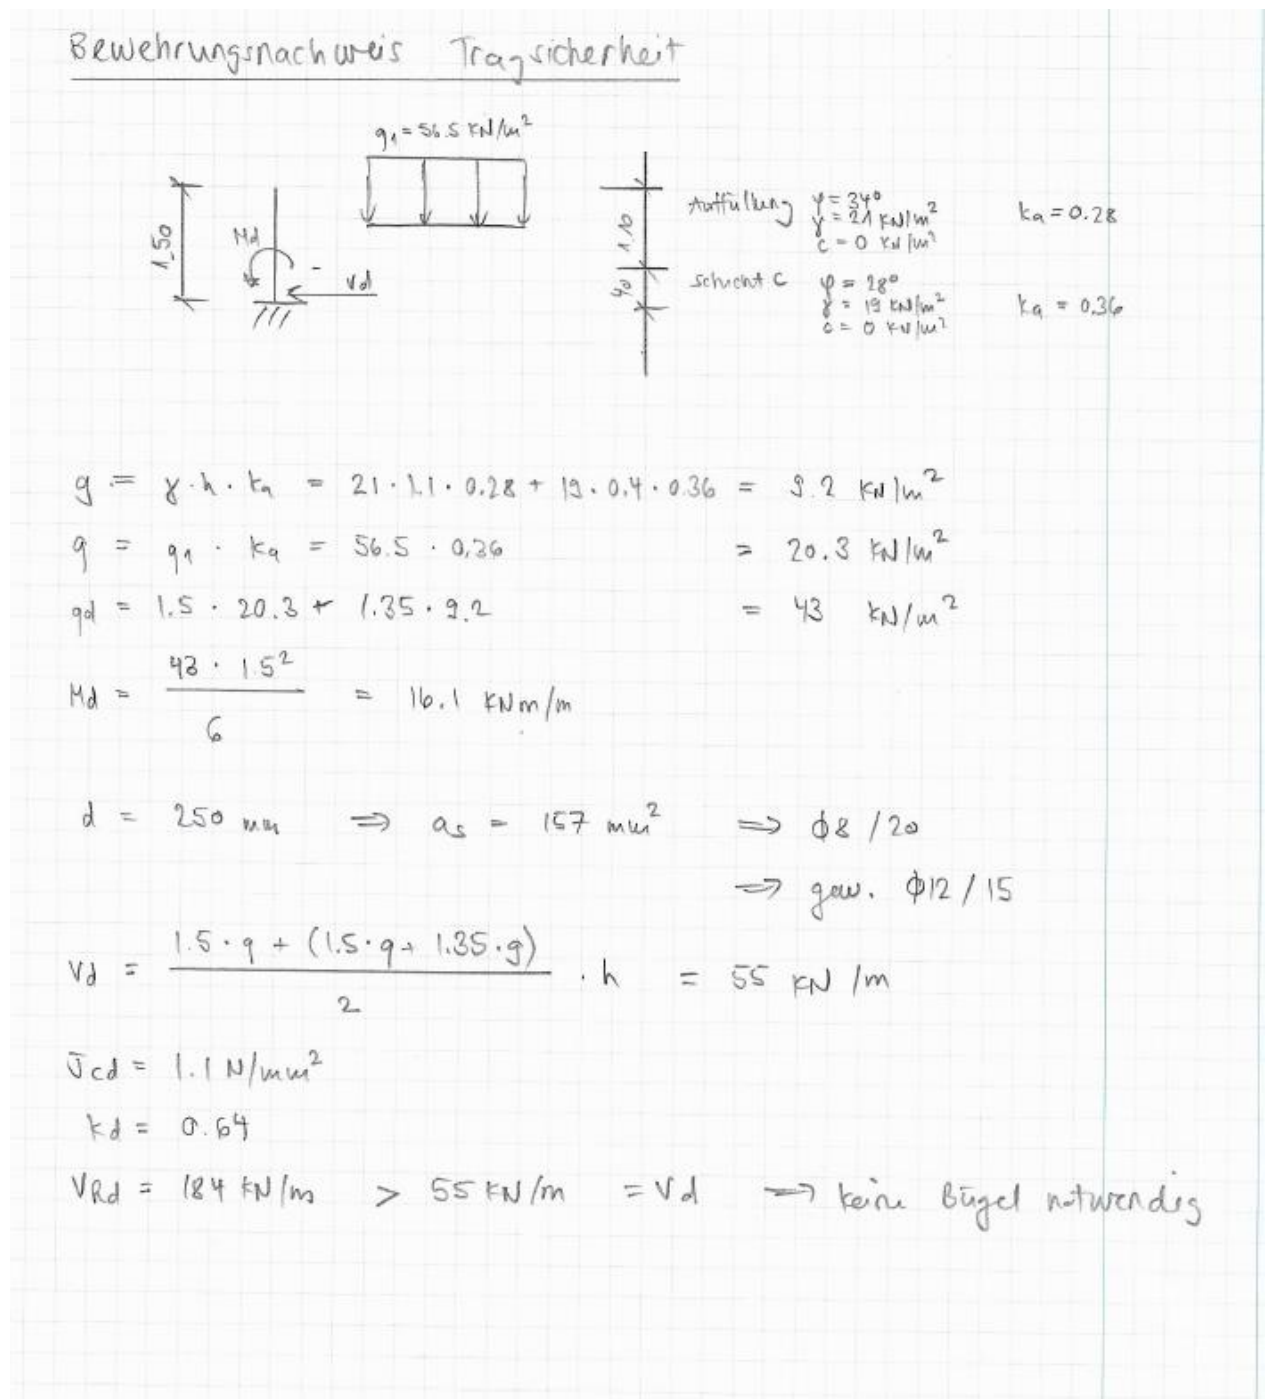 Bewehrungsnachweis Tragsicherheit
q₁ = 56.5 KN/m²
1.50
Md
Vd
1.10
40
Auffüllung φ = 34°
γ = 21 KN/m²
c = 0 KN/m²
ka = 0.28
Schicht C φ = 28°
γ = 19 KN/m²
c = 0 KN/m²
ka = 0.36
g = γ · h · ka = 21 · 1.1 · 0.28 + 19 · 0.4 · 0.36 = 9.2 KN/m²
q = q₁ · ka = 56.5 · 0.36 = 20.3 KN/m²
qd = 1.5 · 20.3 + 1.35 · 9.2 = 43 KN/m²
Md = 43 · 1.5² / 6 = 16.1 KNm/m
d = 250 mm ⇒ as = 157 mm² ⇒ ϕ8 / 20
⇒ gew. ϕ12 / 15
Vd = 1.5 · q + (1.5 · q + 1.35 · g) / 2 · h = 55 KN/m
τcd = 1.1 N/mm²
kd = 0.64
VRd = 184 KN/m > 55 KN/m = Vd ⇒ keine Bügel notwendig